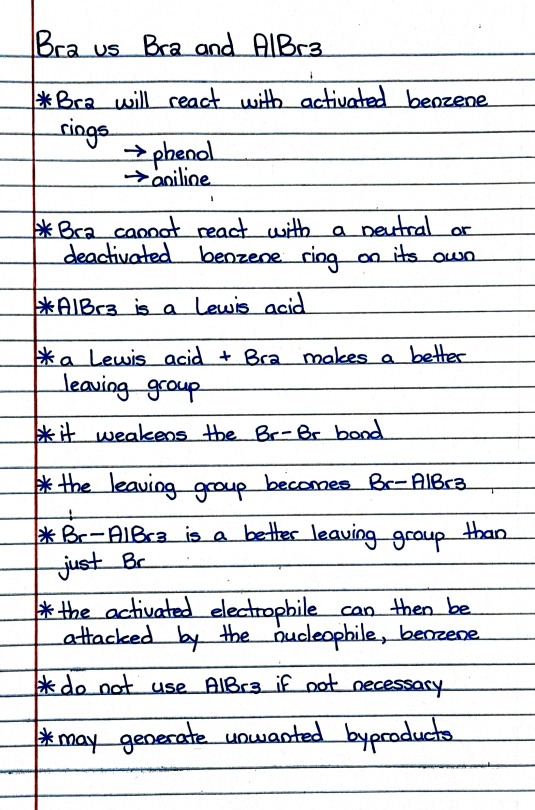 Br2 vs Br2 and AlBr3
*Br2 will react with activated benzene
rings
→ phenol
→ aniline
*Br2 cannot react with a neutral or
deactivated benzene ring on its own
*AlBr3 is a Lewis acid
*a Lewis acid + Br2 makes a better
leaving group
*it weakens the Br-Br bond
*the leaving group becomes Br-AlBr3
*Br-AlBr3 is a better leaving group than
just Br
*the activated electrophile can then be
attacked by the nucleophile, benzene
*do not use AlBr3 if not necessary
*may generate unwanted byproducts